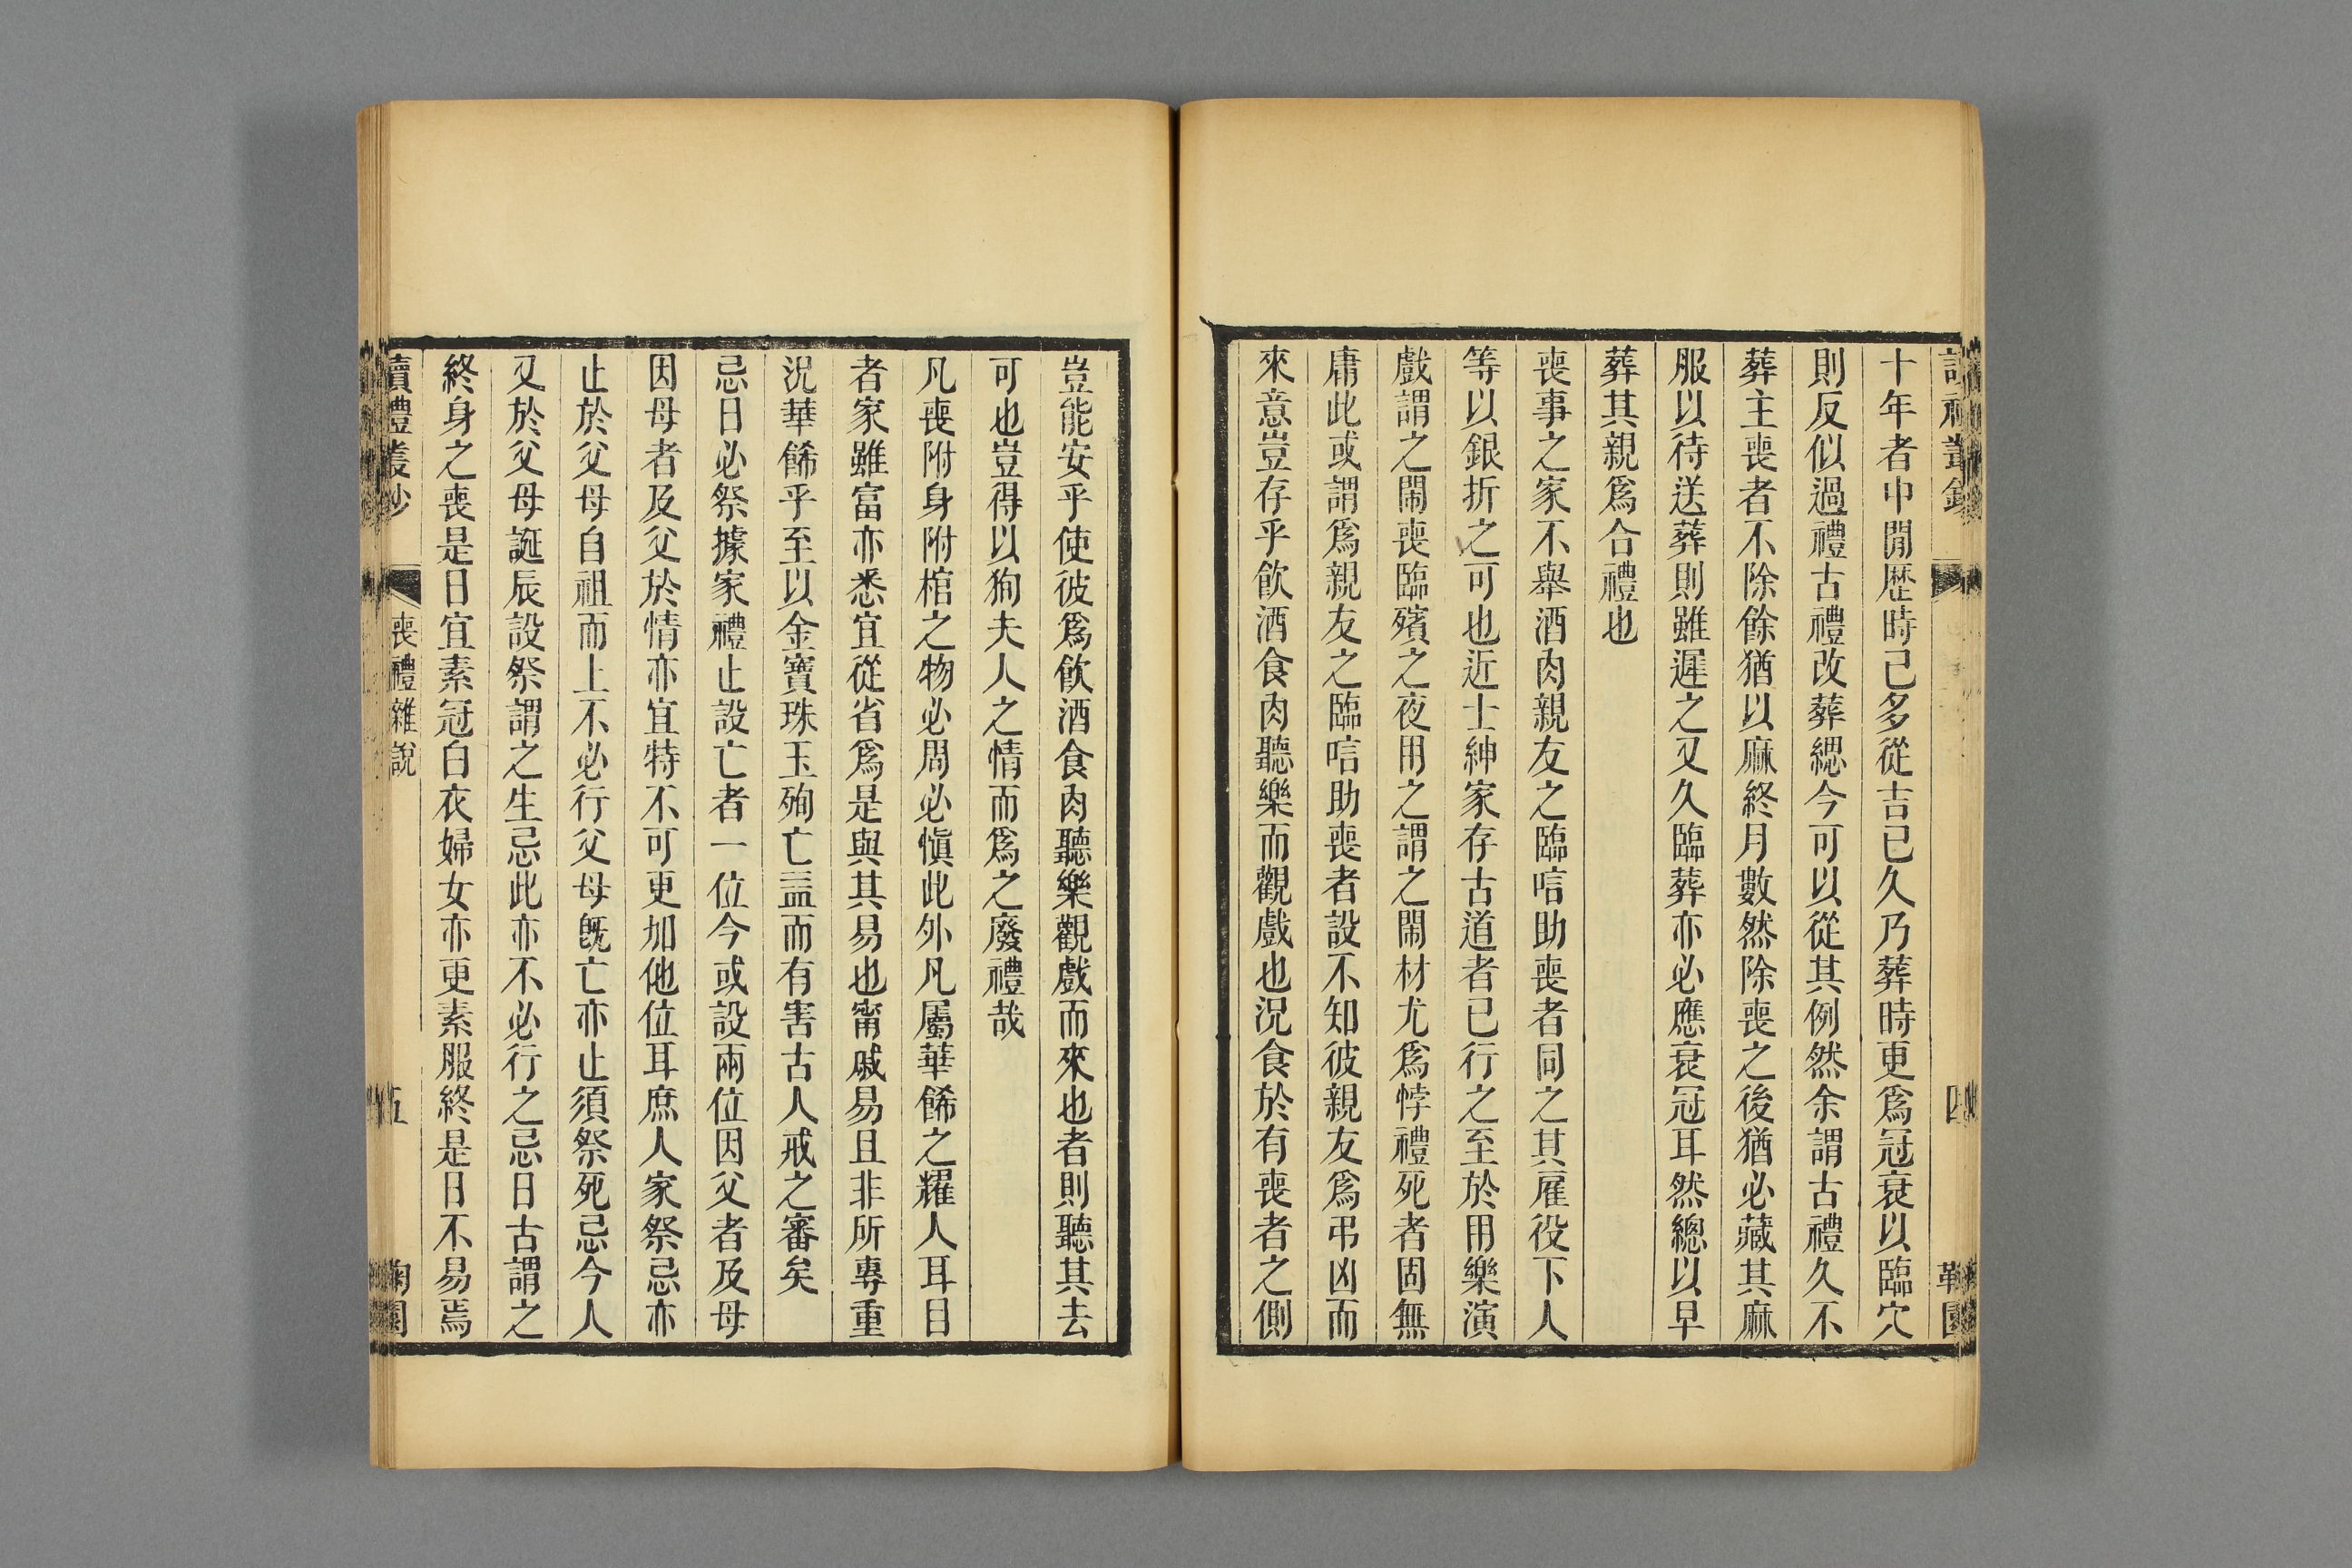 十年者中閒歷時已多從吉已久乃葬時更爲冠衰以臨穴
則反似過禮古禮改葬緦今可以從其例然余謂古禮久不
葬主喪者不除餘猶以麻終月數然除喪之後猶必藏其麻
服以待送葬則雖遲之又久臨葬亦必應衰冠耳然總以早
葬其親爲合禮也
喪事之家不舉酒肉親友之臨唁助喪者同之其雇役下人
等以銀折之可也近士紳家存古道者已行之至於用樂演
戲謂之鬧喪臨殯之夜用之謂之鬧材尤爲悖禮死者固無
庸此或謂爲親友之臨唁助喪者設不知彼親友爲弔凶而
來意豈存乎飲酒食肉聽樂而觀戲也況食於有喪者之側
豈能安乎使彼爲飲酒食肉聽樂觀戲而來也者則聽其去
可也豈得以狥夫人之情而爲之廢禮哉
凡喪附身附棺之物必周必愼此外凡屬華餙之耀人耳目
者家雖富亦悉宜從省爲是與其易也甯戚易且非所專重
況華餙乎至以金寶珠玉殉亡益而有害古人戒之審矣
忌日必祭據家禮止設亡者一位今或設兩位因父者及母
因母者及父於情亦宜特不可更加他位耳庶人家祭忌亦
止於父母自祖而上不必行父母旣亡亦止須祭死忌今人
又於父母誕辰設祭謂之生忌此亦不必行之忌日古謂之
終身之喪是日宜素冠白衣婦女亦更素服終是日不易焉
讀禮叢鈔
喪禮雜說
五